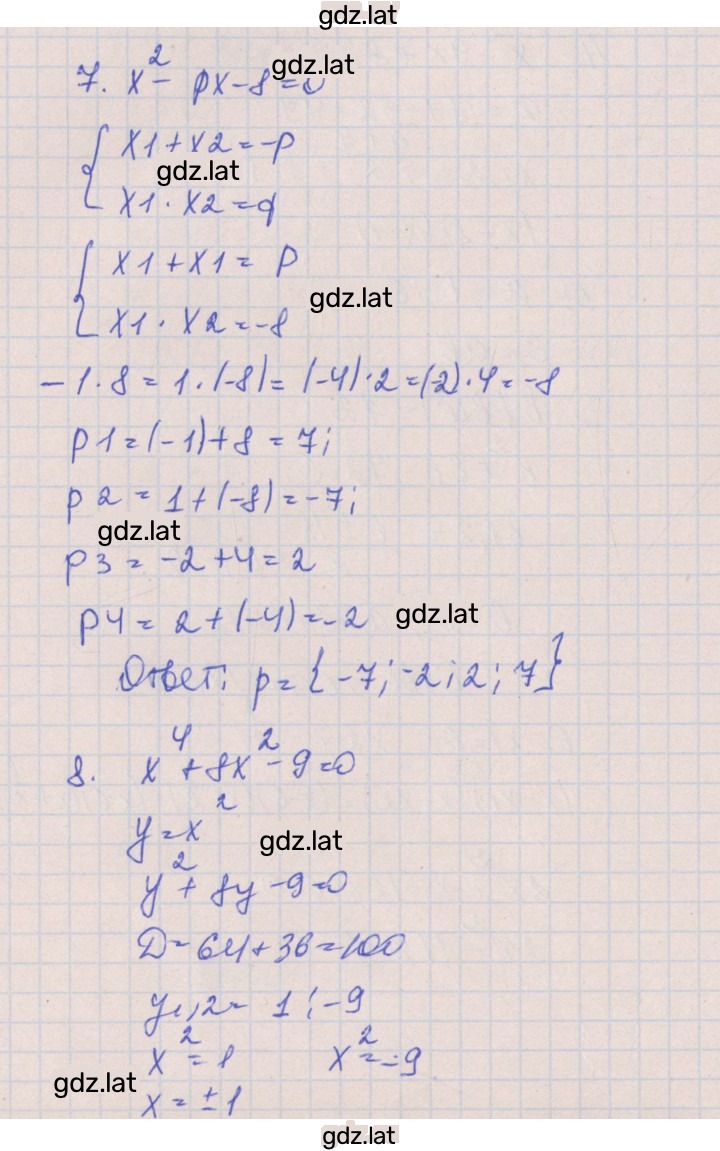 gdz.lat
7. x² - px - 8 = 0
gdz.lat
{ x1 + x2 = -p
gdz.lat
x1 · x2 = q
{ x1 + x1 = p
gdz.lat
x1 · x2 = -8
-1 · 8 = 1 · (-8) = (-4) · 2 = (-2) · 4 = -8
p1 = (-1) + 8 = 7;
p2 = 1 + (-8) = -7;
gdz.lat
p3 = -2 + 4 = 2
p4 = 2 + (-4) = -2
gdz.lat
Ответ: p = {-7; -2; 2; 7}
8. x⁴ + 8x² - 9 = 0
y = x²
gdz.lat
y² + 8y - 9 = 0
D = 64 + 36 = 100
y1,2 = 1; -9
x² = 1 x² = -9
gdz.lat
x = ± 1
gdz.lat